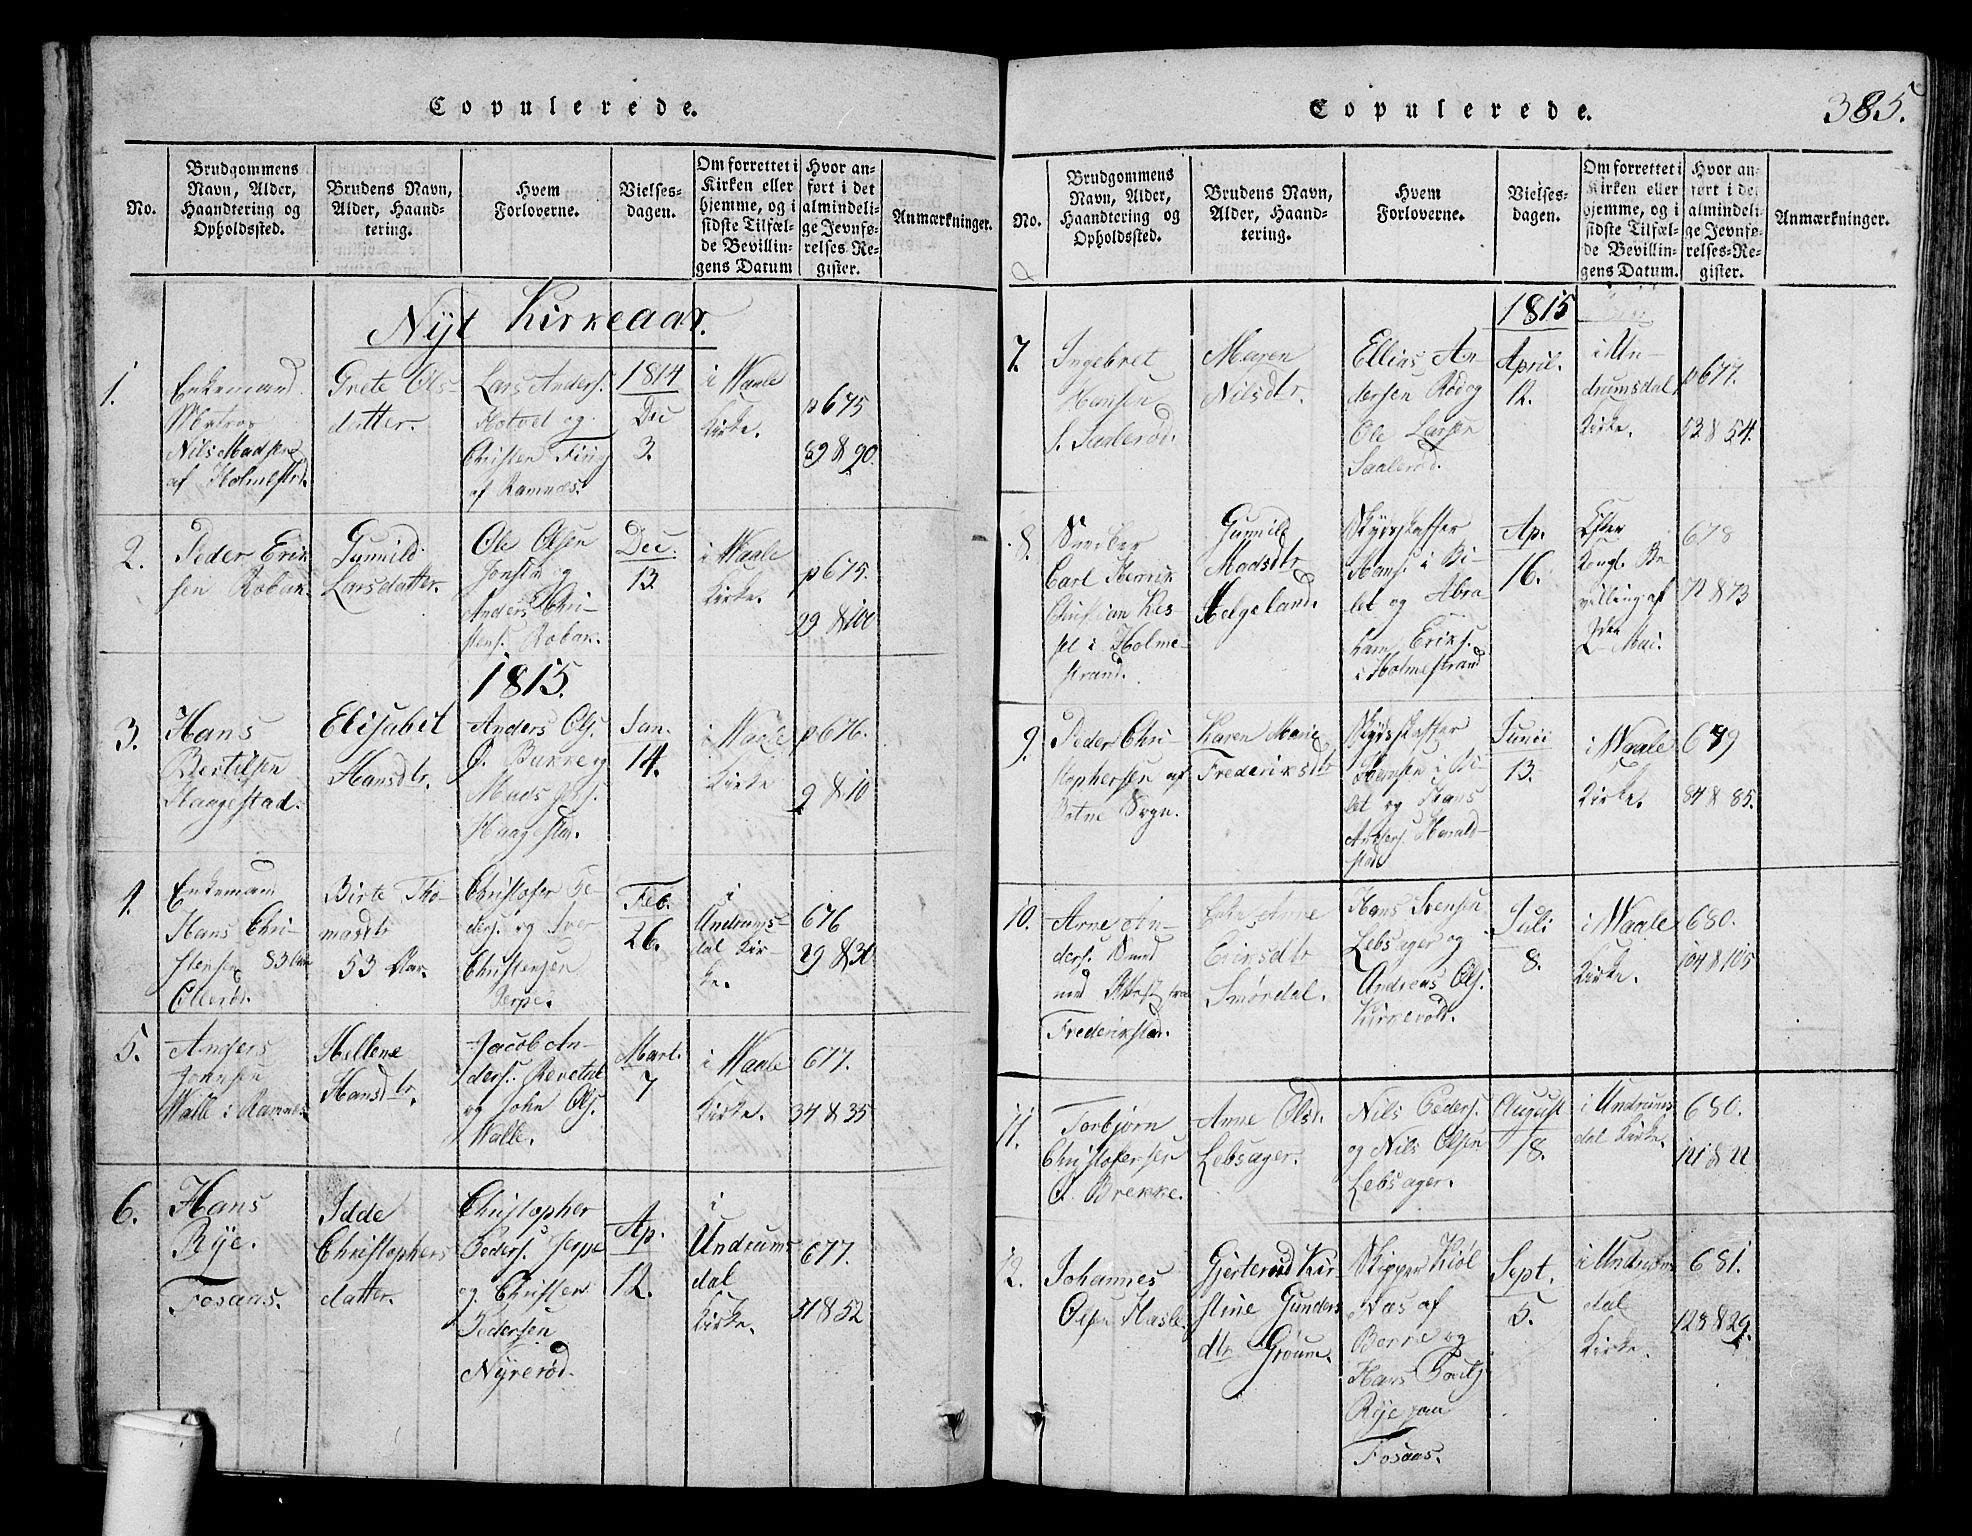 Copulerede.
No.
Brudgommens
Navn, Alder,
Haandtering og
Opholdssted.
Brudens Navn,
Alder, Haand-
tering.
Hvem
Forloverne.
Vielses-
dagen.
Om forrettet i
Kirken eller
hjemme, og i
sidste Tilfæl-
de Bevillin-
gens Datum
Hvor an-
ført i det
almindeli-
ge Jevnfø-
relses-Re-
gister.
Anmærkninger.
Nyt Kirkeaar.
1.
Enkemand
Matros
Nils Madsen
af Holmestrd.
Grete Ols
datter.
Lars Anders.
Kotvet og
Christen Fiing
af Ramnæs.
1814
Dec
3.
i Waale
Kirke.
p 675
89 & 90.
2.
Peder Erik
sen Roban.
Gunnild
Larsdatter.
Ole Olsen
Jonsta og
Anders Chri-
stens. Roban.
Dec.
13
i Waale
Kirke.
p 675.
99 & 100
1815.
3.
Hans
Bertilsen
Haagestad.
Elisabet
Hansdtr.
Anders Ols.
G. Bakke og
Mads Jos.
Haagesta.
Jan.
14.
i Waale
Kirke
p 676.
9 & 10
4.
Enkemann
Hans Chri-
stensen 83 Aar
Ellerød.
Birte Tho-
masdtr
53 Aar.
Christofer Pe-
ders. og Iver
Christensen
Jerpe.
Feb.
26.
i
Undrums-
dal Kir-
ke.
676
29 & 30
5.
Anders
Johnsen
Walle i Ramnes
Hellene
Hansdtr.
Jacob An-
ders. Revetal
og John Ols.
Walle.
Mart.
7
i Waale
Kirke.
677.
34 & 35
6.
Hans
Rye.
Fosaas.
Idde
Christophers
datter.
Christopher
Peders. Jerpe
og Christen
Pedersen
Nyrerød.
Ap.
12.
i
Undrums
dal
Kirke.
677.
51 & 52
Copulerede.
385.
No.
Brudgommens
Navn, Alder,
Haandtering og
Opholdssted.
Brudens Navn,
Alder, Haand-
tering.
Hvem
Forloverne.
Vielses-
dagen.
Om forrettet i
Kirken eller
hjemme, og i
sidste Tilfæl-
de Bevillin-
gens Datum.
Hvor an-
ført i det
almindeli-
ge Jevnfø-
relses-Re-
gister.
Anmærkninger.
1815
7.
Ingebret
Hansen
S. Saalerød.
Maren
Nilsdtr.
Ellias An
dersen Rød og
Ole Larsen
Saalerød.
April.
12.
i Un-
drumsdal
Kirke.
p 677.
53 & 54.
8.
Snedker
Carl Henrik
Christian Kes-
sel i Holme-
strand.
Gunnild
Madsdtr
Helgeland.
Skydsskaffer
Hans. i Bi-
let og Abra
ham Eriks.
i Holmestrand
Ap.
16.
Efter
Kongl. Be
villing af
Mai.
678
72 & 73
9.
Peder Chri-
stophersen af
Botne Sogn.
Karen Marie
Frederiksdtr
Skydsskaffer
Hansen i Bi-
let og Hans
Anders. Harald-
stad
Junii
13.
i Waale
Kirke.
679
84 & 85.
10.
Arne An-
ders. Smed
ved
Frederiksta.
Anne
Eriksdtr
Smørdal.
Hans Svensen
Lebsager og
Andreas Ols.
Kirkevold.
Juli
8.
i Waale
Kirke.
680.
104 & 105
11.
Torbjørn
Christofersen
G. Brekke.
Anne Olsd.
Lebsager.
Nils Peders.
og Nils Olsen
Lebsager.
August
18.
i Undrums
dal Kirke.
680.
121 & 22
12.
Johannes
Olsen Hasle.
Gjerterud Kir-
stine Gunders
dtr Grøum.
Skipper Kiøl
aas af
Borre og
Hans Pouls.
Rye paa
Fosaas.
Sept.
5.
i Undrums
dal
Kirke.
681.
128 & 29.